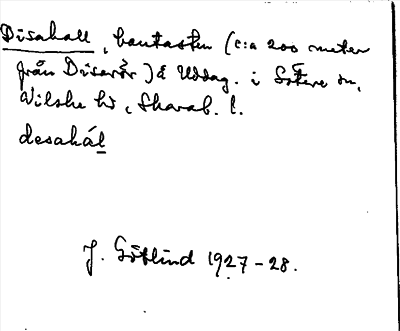 Disahall, bautasten (c:a 200 meter
från Disarör) å Uddag. i Sätra sn,
Vilske hd, Skarab. l.
desahál
J. Götlind 1927-28.